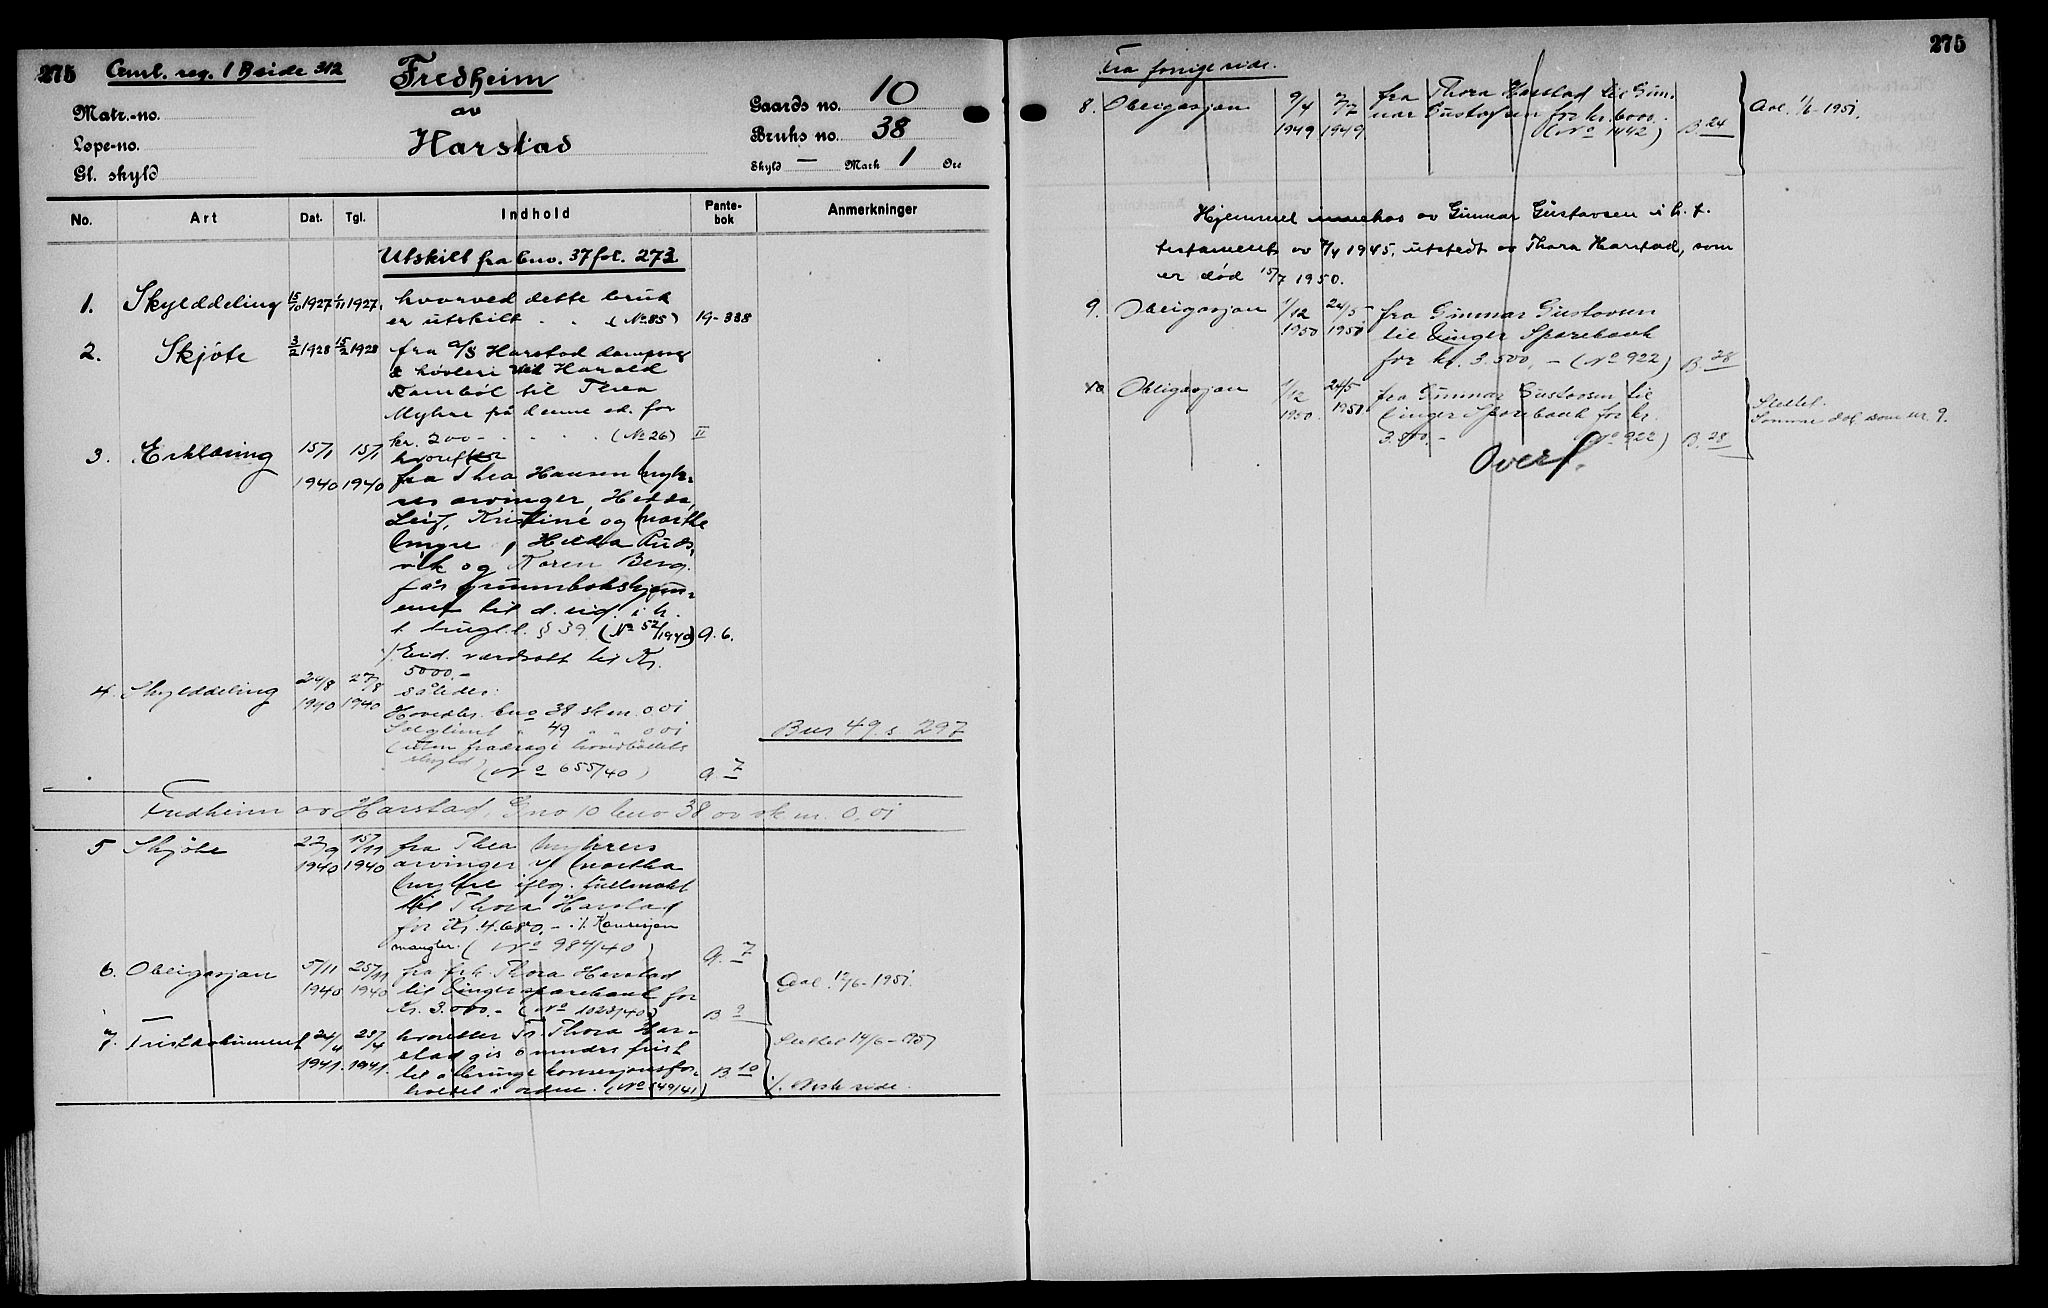 275 Aml. reg. 1 B side 312
Fredheim
av
Harstad
Matr.-no.
Løpe-no.
Gl. skyld
Gaards no. 10
Bruks no. 38
Skyld — Mark 1 Øre
No. Art Dat. Tgl. Indhold Pante-bok Anmerkninger
Utskilt fra bno. 37 fol. 273
1. Skylddeling 15/10 1927 1/11 1927. hvorved dette bruk
er utskilt . . (No 85) 19-338
2. Skjøte 3/2 1928 15/2 1928 fra A/S Harstad dampsag
& høvleri ved Harald
Rambøl til Thea
Myhre på denne ed. for
kr. 200 - . . . . (No 26) II
3. Erklæring 15/1 1940 15/1 1940 hvorefter
fra Thea Hansen Myh-
res arvinger, Hedda,
Leif, Kristine og Marthe
Myre, Hilda Ruds-
vik og Karen Berg.
får grunnbokshjem-
mel til d. eid. i h.
t. tingl.l. § 39. (No 52/1940) A. 6.
/. Eid. verdsatt til Kr.
5000.-
4. Skylddeling 24/8 1940 27/8 1940 således:
Hovedbr. bno 38 skm. 0,01
Solglimt " 49 " " 0,01
(uten fradrag i hovedbølets
skyld) (No 655/40) A. 7
Bnr 49 s 297
Fredheim av Harstad, Gno 10 bno 38 av sk m. 0,01
5 Skjøte 22/9 1940 15/11 1940 fra Thea Myhres
arvinger v/ Martha
Myhre iflg. fullmakt
til Thora Harstad
for Kr. 4.680,- ./. Konsesjon
mangler. (No 984/40) A. 7
6. Obligasjon 5/11 1940 25/11 1940 fra frk. Thora Harstad
til Vinger sparebank for
Kr. 3.000.- (No 1023/40) B 9
Avl. 12/6-1951.
7. Fristdokument 24/4 1941. 29/4 1941. hvoretter Fr. Thora Har-
stad gis 6 mndrs frist
til å bringe konsesjonsfor-
holdet i orden. (No 149/41) B. 10
Slettet 14/6-1951
/. Neste side.
275
Fra forrige side.
8. Obligasjon 9/4 1949 7/7 1949 fra Thora Harstad til Gun-
nar Gustafsen for kr. 6000.-
(No 1442) B. 24
Avl. 1/6-1951.
Hjemmel innehas av Gunnar Gustavsen i h. t.
testament av 7/4 1945, utstedt av Thora Harstad, som
er død 15/7 1950.
9. Obligasjon 1/12 1950 24/5- 1951 fra Gunnar Gustavsen
til Vinger Sparebank
for kr. 3.500,- (No 922) B. 28
10 Obligasjon 1/12 1950. 24/5 1951 fra Gunnar Gustavsen til
Vinger Sparebank for kr.
3.500.- (No 922) B. 28
Slettet.
Samme dok som nr. 9.
Overf.